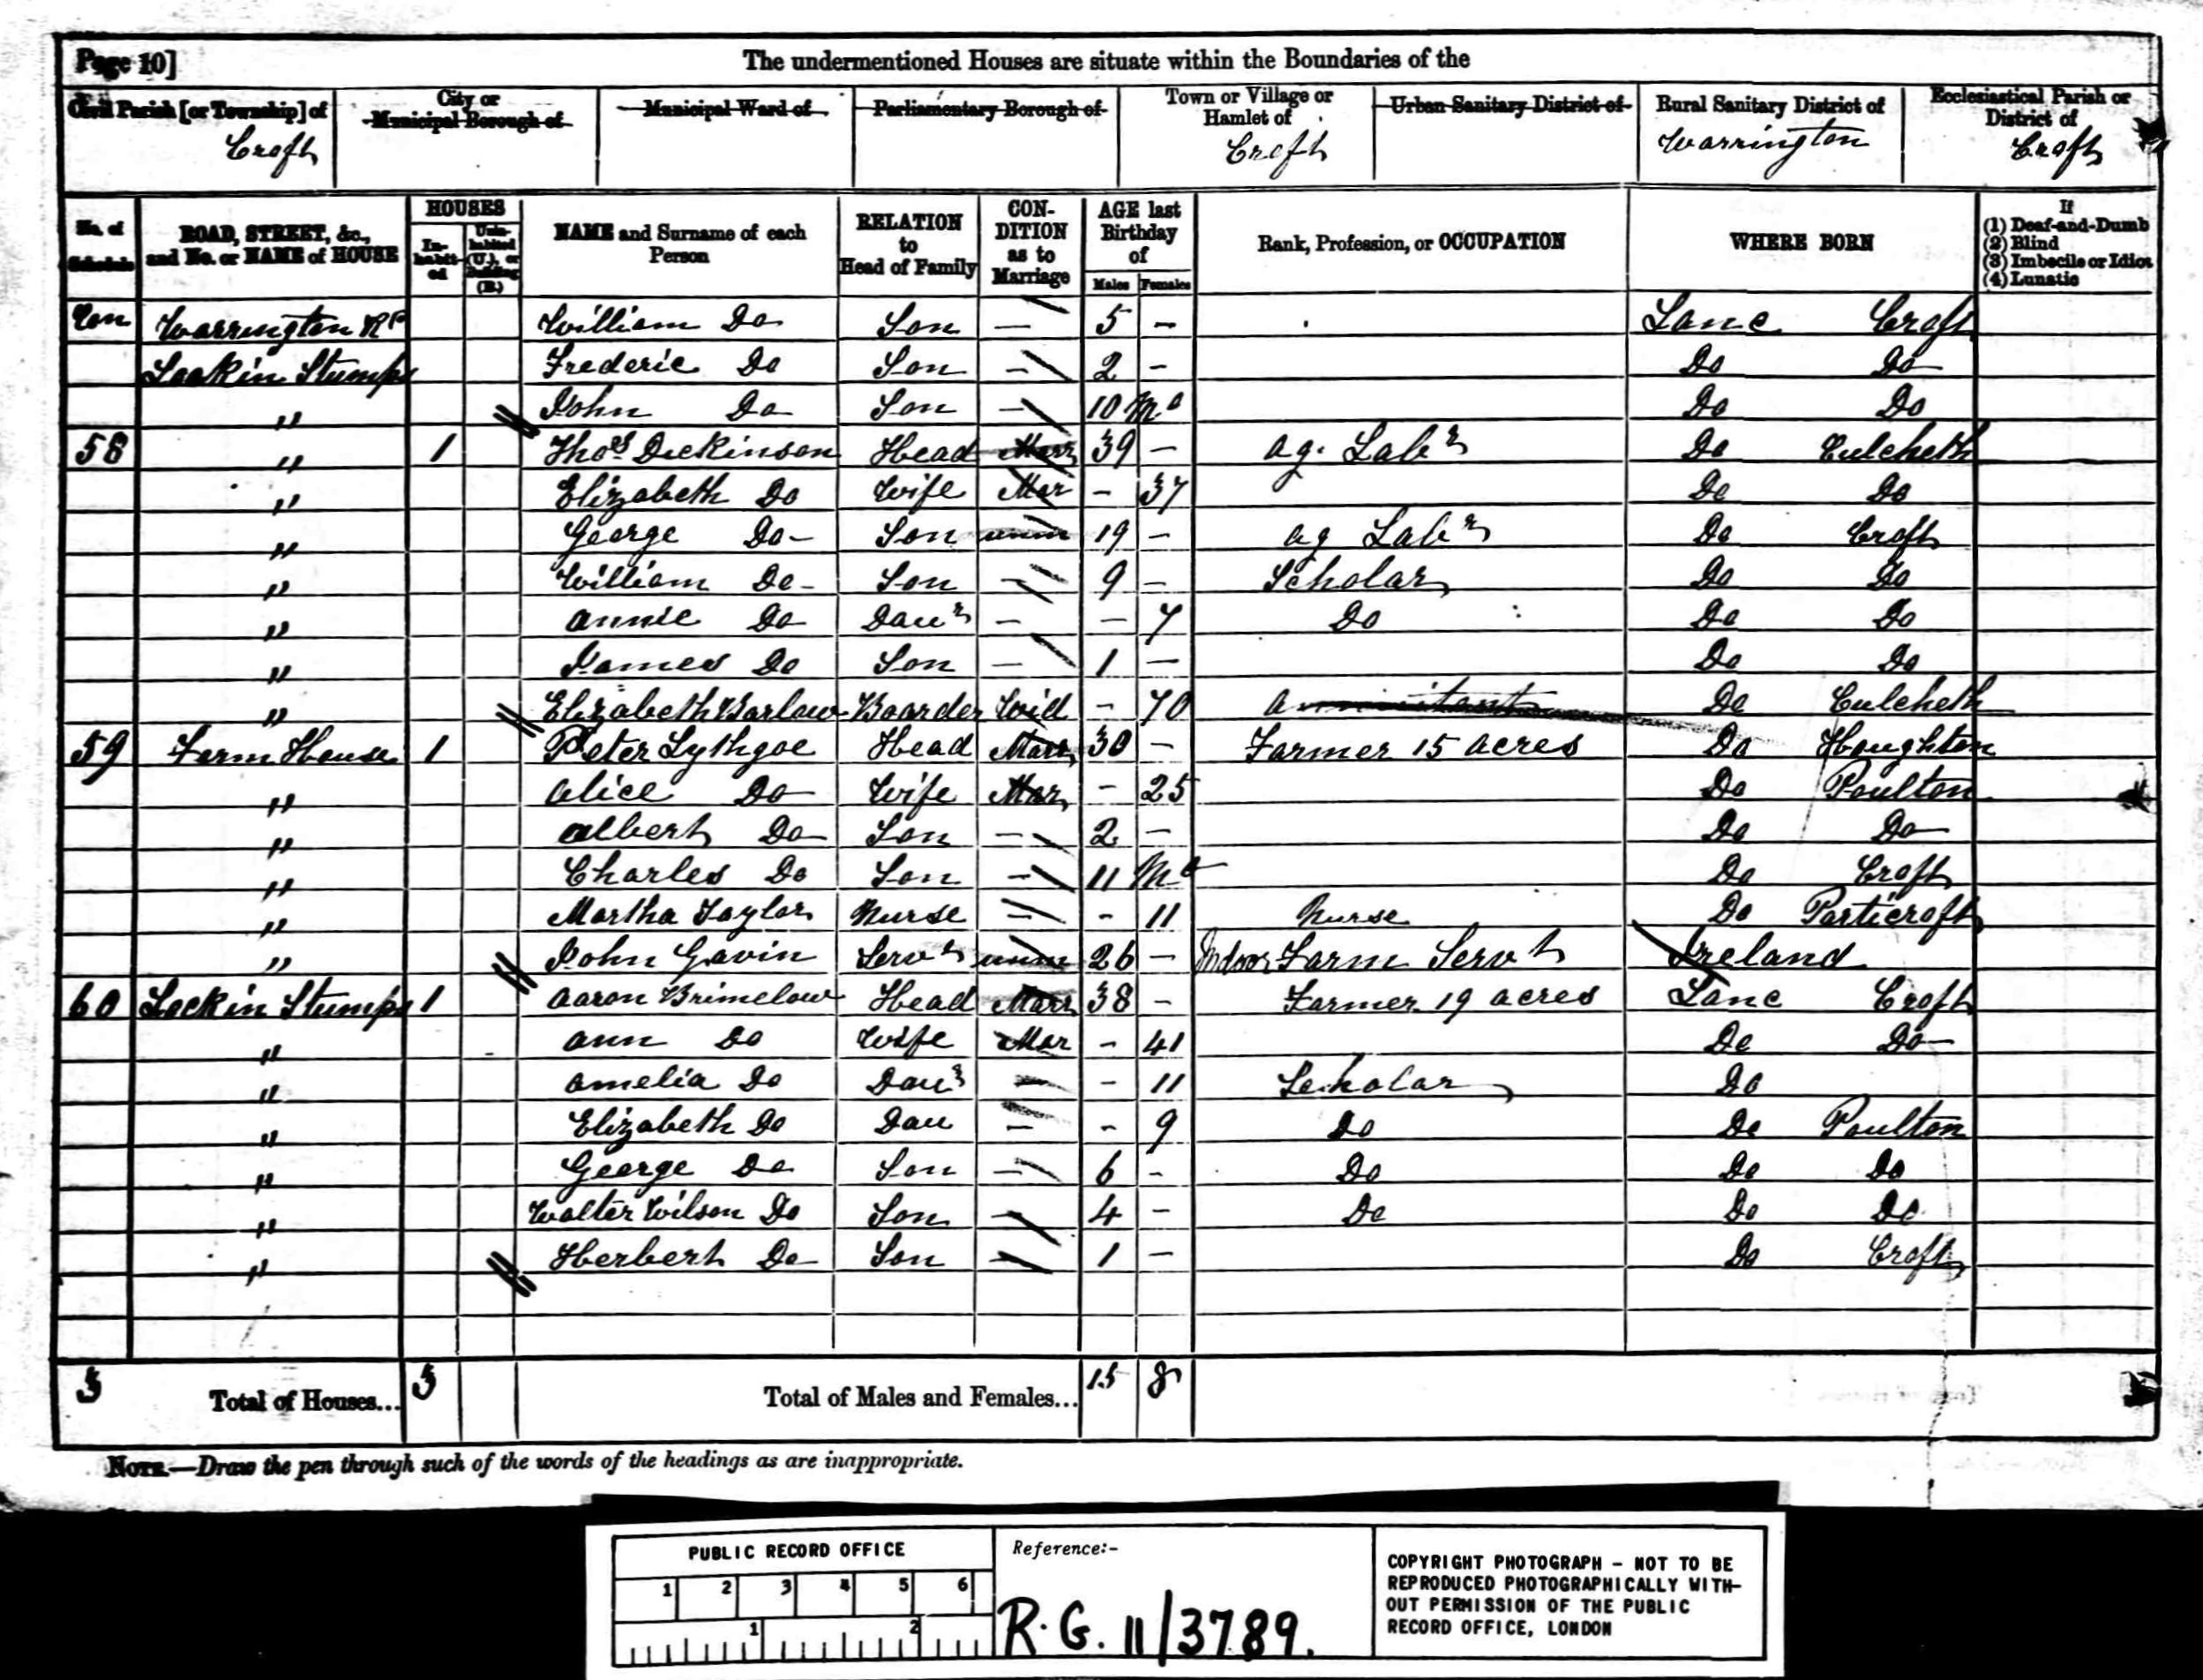 Page 10] The undermentioned Houses are situate within the Boundaries of the
Civil Parish [or Township] of City or Municipal Borough of Municipal Ward of Parliamentary Borough of Town or Village or Hamlet of Urban Sanitary District of Rural Sanitary District of Ecclesiastical Parish or District of
Croft Croft Warrington Croft
No. of Schedule ROAD, STREET, &c., and No. or NAME of HOUSE HOUSES In-habit-ed Unin-habited (U.), or Building (B.) NAME and Surname of each Person RELATION to Head of Family CON-DITION as to Marriage AGE last Birthday of Males Females Rank, Profession, or OCCUPATION WHERE BORN If (1) Deaf-and-Dumb (2) Blind (3) Imbecile or Idiot (4) Lunatic
Con Warrington Rd William Do Son — 5 - Lanc Croft
Lockin Stumps Frederic Do Son - 2 - Do Do
" John Do Son - 10 Mo Do Do
58 " 1 Thos Dickinson Head Marr 39 - Ag. Labr Do Culcheth
" Elizabeth Do Wife Mar - 37 Do Do
" George Do Son unm 19 - Ag Labr Do Croft
" William Do Son - 9 - Scholar Do Do
" Annie Do Daur - - 7 Do Do Do
" James Do Son - 1 - Do Do
" Elizabeth Barlow Boarder Wid - 70 Do Culcheth
59 Farm House 1 Peter Lythgoe Head Marr 30 - Farmer 15 acres Do Houghton
" Alice Do Wife Mar - 25 Do Poulton
" Albert Do Son - 2 - Do Do
" Charles Do Son - 11 Mo Do Croft
" Martha Taylor Nurse - - 11 Nurse Do Particroft
" John Gavin Servt unm 26 - Indoor Farm Servt Ireland
60 Lockin Stumps 1 Aaron Brimelow Head Marr 38 - Farmer 19 acres Lanc Croft
" Ann Do Wife Mar - 41 Do Do
" Amelia Do Daur - - 11 Scholar Do
" Elizabeth Do Dau - - 9 Do Do Poulton
" George Do Son - 6 - Do Do Do
" Walter Wilson Do Son - 4 - Do Do Do
" Herbert Do Son - 1 - Do Croft
3 Total of Houses... 3 Total of Males and Females... 15 8
NOTE.—Draw the pen through such of the words of the headings as are inappropriate.
PUBLIC RECORD OFFICE
1 2 3 4 5 6
1 2
Reference:-
R.G. 11/3789.
COPYRIGHT PHOTOGRAPH - NOT TO BE
REPRODUCED PHOTOGRAPHICALLY WITH-
OUT PERMISSION OF THE PUBLIC
RECORD OFFICE, LONDON